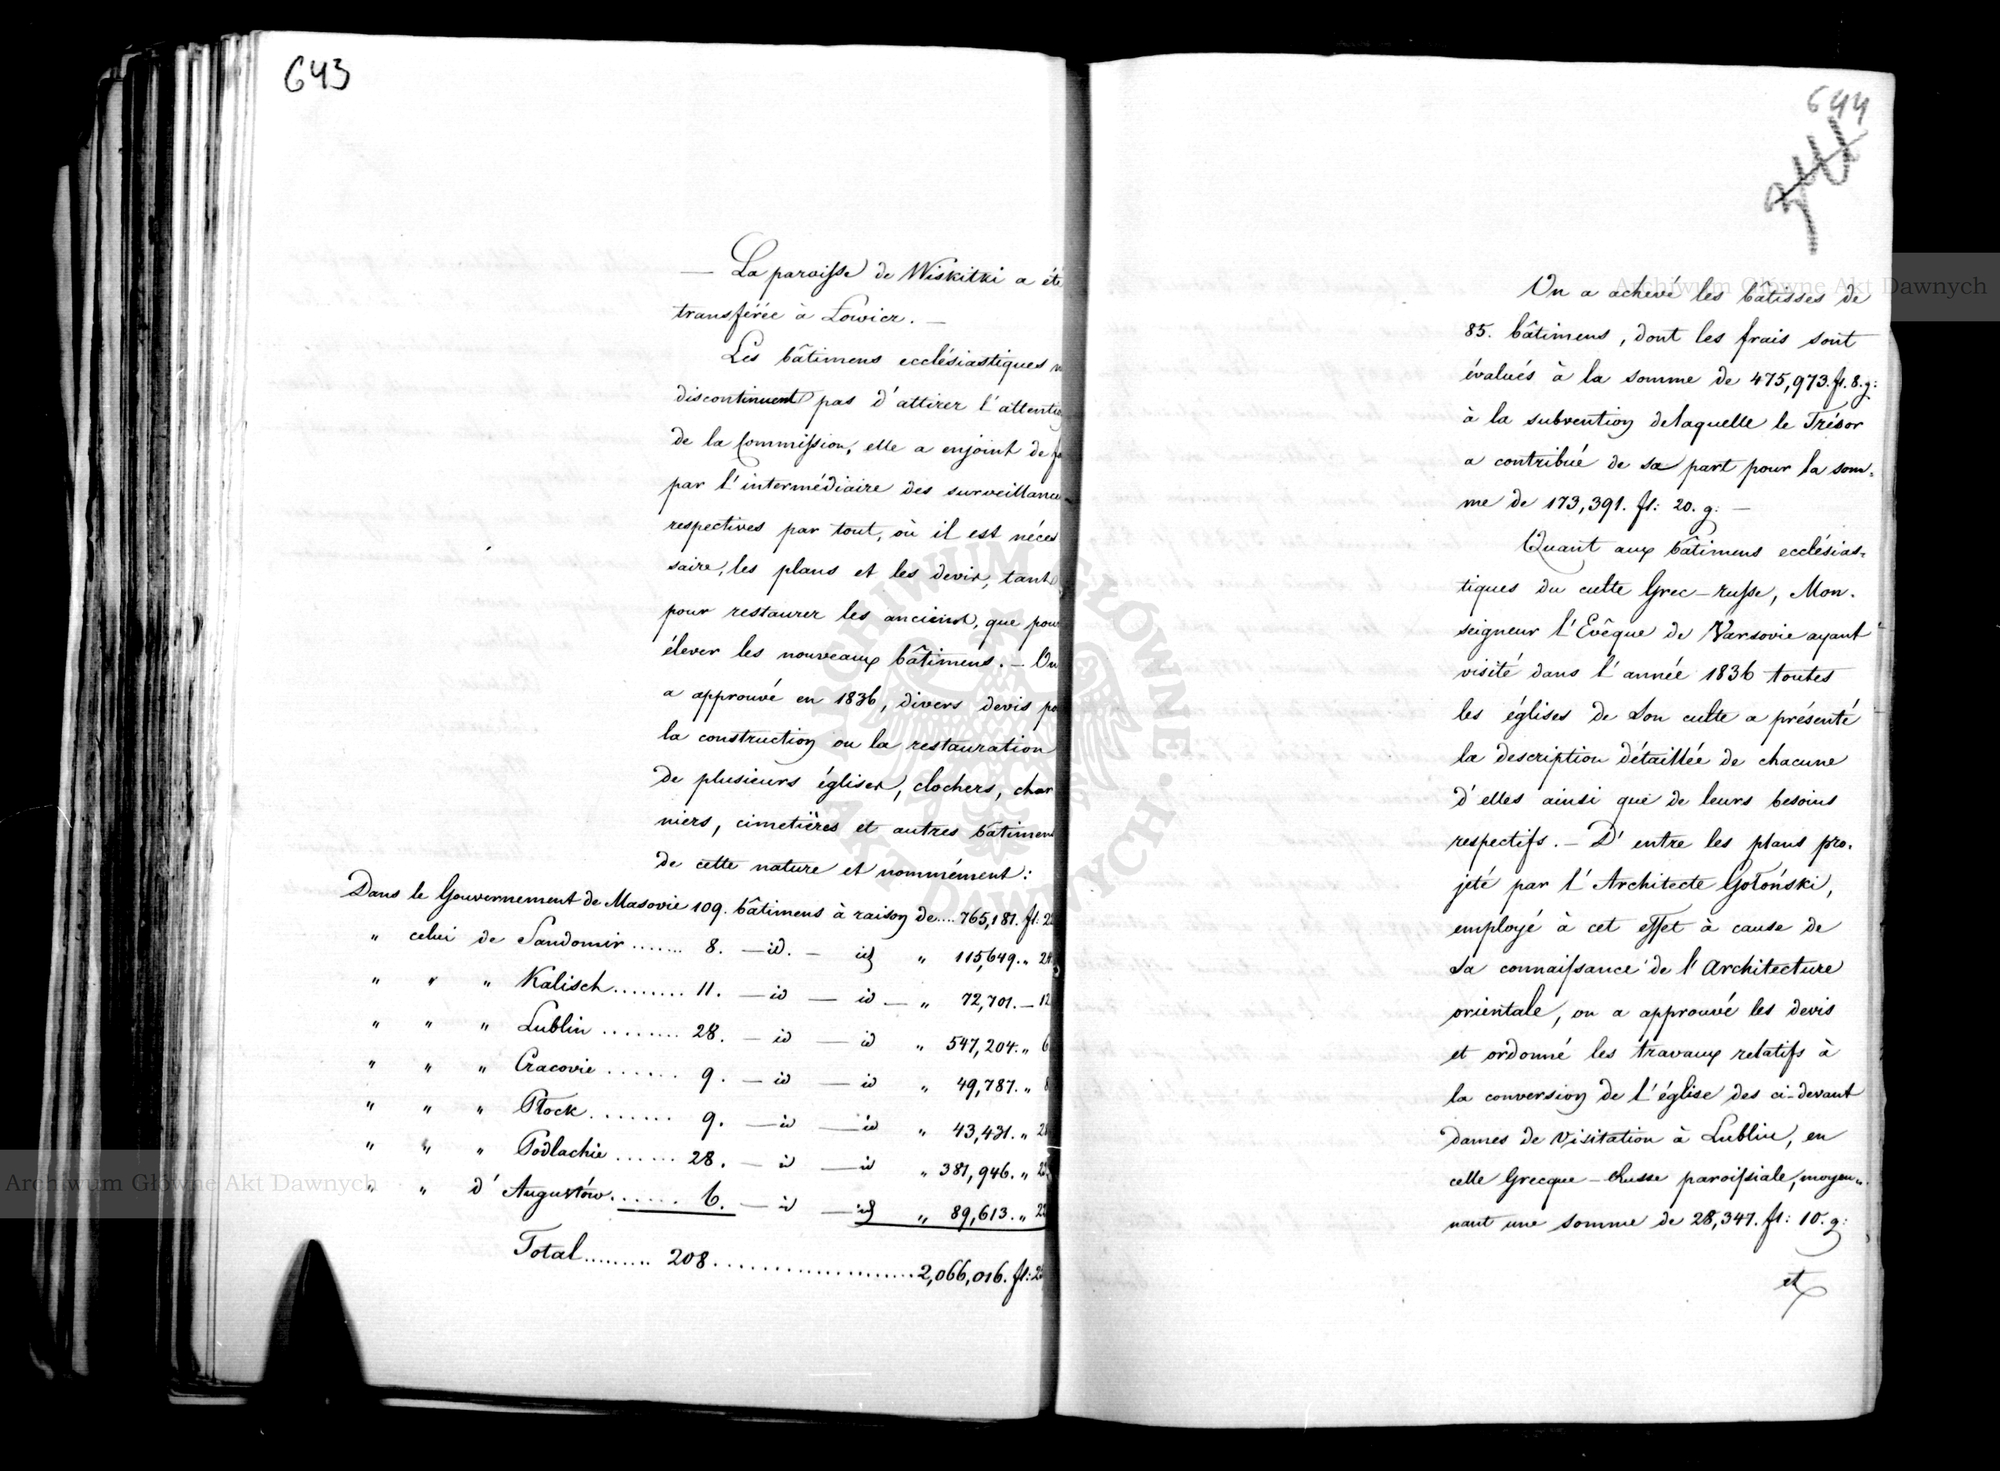 643
— La paroisse de Wiskitki a été
transférée à Lowicz. —
Les bâtimens ecclésiastiques n
discontinuent pas d'attirer l'attentio
de la Commission, elle a enjoint de fe
par l'intermédiaire des surveillance
respectives par tout, où il est néces
saire, les plans et les devis, tant
pour restaurer les anciens, que pour
élever les nouveaux bâtimens. — On
a approuvé en 1836, divers devis po
la construction ou la restauration
de plusieurs églises, clochers, char
niers, cimetières et autres bâtimen
de cette nature et nommément:
Dans le Gouvernement de Masovie 109. bâtimens à raison de.... 765,181. fl: 22
" celui de Sandomir ....... 8. — id. — id " 115,649. " 28
" " " Kalisch ........ 11. — id — id — " 72,701. — 12
" " " Lublin ........ 28. — id — id " 547,204. " 6
" " " Cracovie ....... 9. — id — id " 49,787. " 8
" " " Płock ........ 9. — id — id " 43,431. " 2
" " " Podlachie ...... 28. — id — id " 381,946. " 22
" " d' Augustów ...... 6. — id — id " 89,613. " 22
Total ......... 208 .................... 2,066,016. fl: 2
644
On a achevé les bâtisses de
85. bâtimens, dont les frais sont
évalués à la somme de 475,973. fl. 8. g:
à la subvention delaquelle le Trésor
a contribué de sa part pour la som-
me de 173,391. fl: 20. g: —
Quant aux bâtimens ecclésias-
tiques du culte Grec-russe, Mon-
seigneur l'Evêque de Varsovie ayant
visité dans l'année 1836 toutes
les églises de Son culte a présenté
la description détaillée de chacune
d'elles ainsi que de leurs besoins
respectifs. — D'entre les plans pro-
jeté par l'Architecte Gołoński,
employé à cet effet à cause de
sa connaissance de l'Architecture
orientale, on a approuvé les devis
et ordonné les travaux relatifs à
la conversion de l'église des ci-devant
dames de Visitation à Lublin, en
celle Grecque-Russe paroissiale, moyen-
nant une somme de 28,347. fl: 10. g:
et
Archiwum Główne Akt Dawnych
Archiwum Główne Akt Dawnych
ARCHIWUM GŁÓWNE AKT DAWNYCH